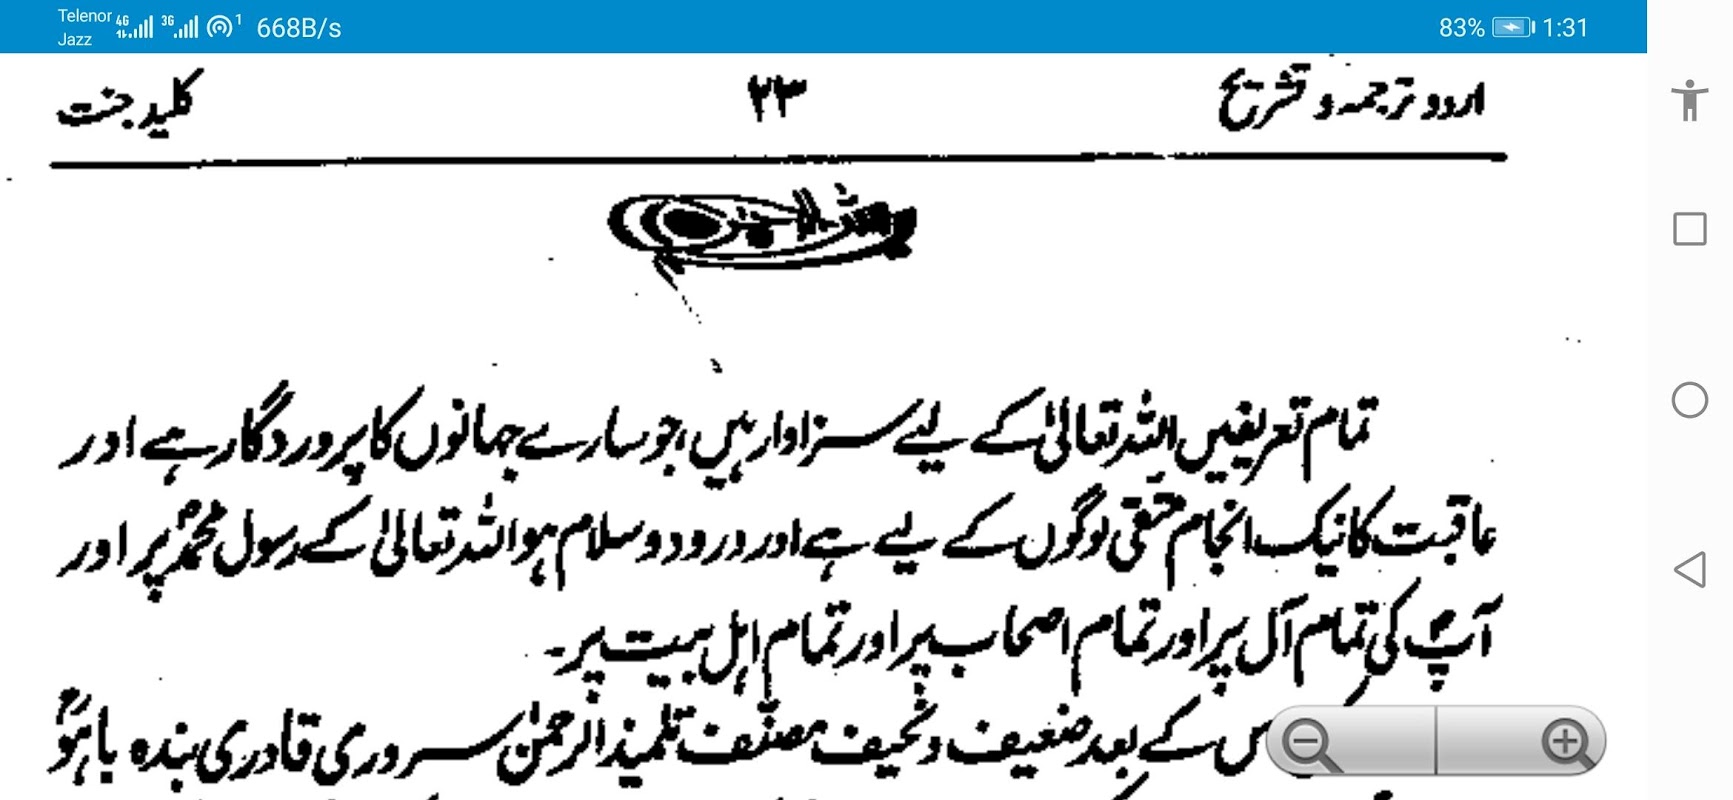 Telenor 4G 3G 1 668B/s 83% 1:31
Jazz
اردو ترجمہ و تشریح ۲۳ کلید جنت
تمام تعریفیں اللہ تعالیٰ کے لیے سزاوار ہیں، جو سارے جہانوں کا پروردگار ہے اور
عاقبت کا نیک انجام متقی لوگوں کے لیے ہے اور درود و سلام ہو اللہ تعالیٰ کے رسول محمدؐ پر اور
آپؐ کی تمام آل پر اور تمام اصحاب پر اور تمام اہل بیت پر۔
کے بعد ضعیف و نحیف مصنف تلمیذ الرحمٰن سروری قادری بندہ باہوؒ